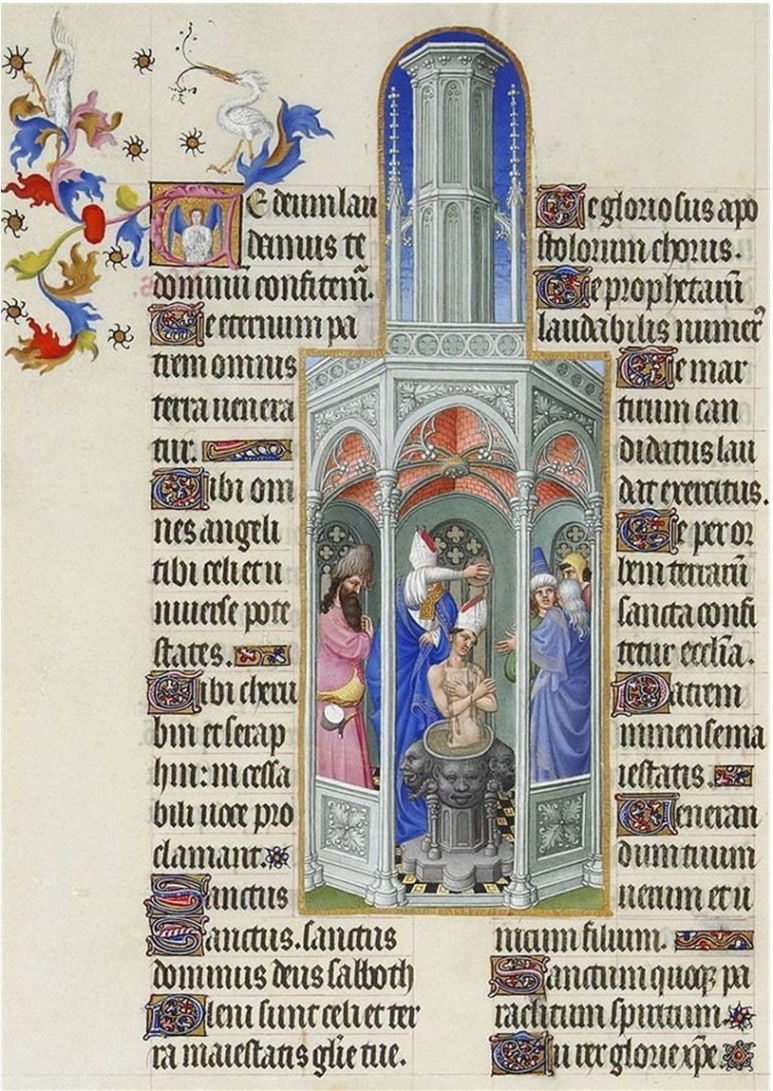 Te deum lau
damus te
dominū confitem̄.
Te eternum pa
trem omnis
terra uenera
tur.
Tibi om
nes angeli
tibi celi et u
niuerse pote
states.
Tibi cheru
bin et serap
hin: in cessa
bili uoce pro
clamant.
Sanctus
Sanctus. sanctus
dominus deus sabboth
Pleni sunt celi et ter
ra maiestatis glie tue.
Te gloriosus apo
stolorum chorus.
Te prophetarū
laudabilis numer᾽
Te mar
tirum can
didatus lau
dat exercitus.
Te per or
bem terrarū
sancta confi
tetur eccl̄ia.
Patrem
inmense ma
iestatis.
Veneran
dum tuum
uerum et u
nicum filium.
Sanctum quoqꝫ pa
raclitum spiritum.
Tu rex glorie xp̄e.